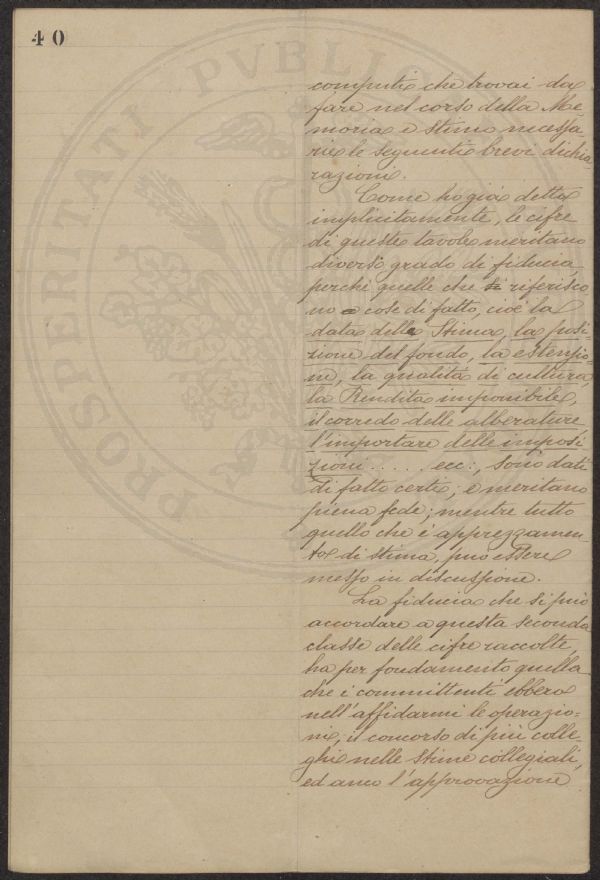 40
PROSPERITATI PVBLIC
computi che trovai da
fare nel corso della Me-
moria e stimo necessa-
rie le seguenti brevi dichia-
razioni.
Come ho già detto
implicitamente, le cifre
di queste tavole meritano
diverso grado di fiducia,
perchè quelle che si riferisco
no a cose di fatto, cioè la
data della Stima, la posi-
zione del fondo, la estensio
ne, la qualità di cultura,
la Rendita imponibile,
il corredo delle alberature
l'importare delle imposi
zioni ..... ecc:, sono dati
di fatto certi; e meritano
piena fede; mentre tutto
quello che è apprezzamen-
to di stima, può essere
messo in discussione.
La fiducia che si può
accordare a questa seconda
classe delle cifre raccolte,
ha per fondamento quella
che i committenti ebbero
nell'affidarmi le operazio-
ni, il concorso di più colle-
ghi nelle Stime collegiali,
ed anco l'approvazione